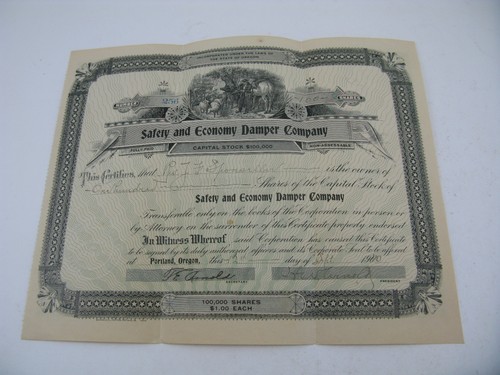 INCORPORATED UNDER THE LAWS OF
THE STATE OF OREGON
NUMBER SHARES
Safety and Economy Damper Company
FULLY PAID CAPITAL STOCK $100,000 NON-ASSESSABLE
This Certifies, that is the owner of
One hundred Shares of the Capital Stock of
Safety and Economy Damper Company
Transferable only on the books of the Corporation in person or
by Attorney on the surrender of this Certificate properly endorsed
In Witness Whereof said Corporation has caused this Certificate
to be signed by its duly authorized officers and its Corporate Seal to be affixed
at Portland, Oregon, this day of Sept 190
Arnold
SECRETARY PRESIDENT
100,000 SHARES
$1.00 EACH